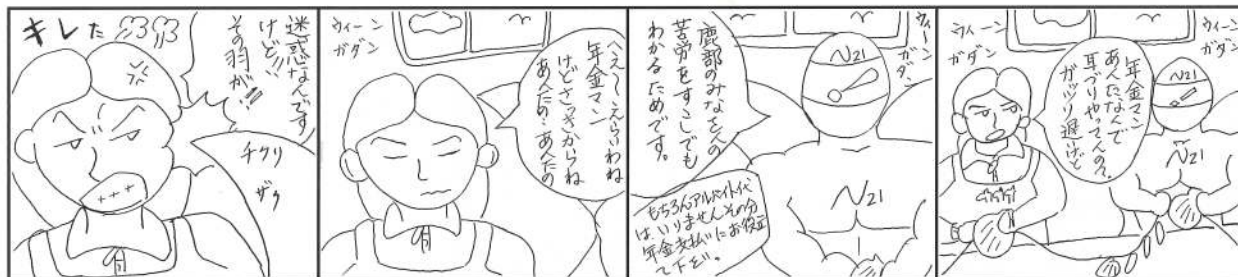 ウィーン
ガダン
年金マン
あんたなんで
耳づりやってんの?
ガッツリ遅いけど
N21
N21
ウィーン
ガダン
N21
鹿部のみなさんの
苦労をすこしでも
わかるためです。
もちろんアルバイト代
は、いりません。その分
年金支払いにお役立
て下さい。
N21
ウィーン
ガダン
へえ〜、えらいわね
年金マン
けどさっきからね
あんたの…あんたの
迷惑なんです
けど!!
その羽が!!
キレた
チクリ
ザク